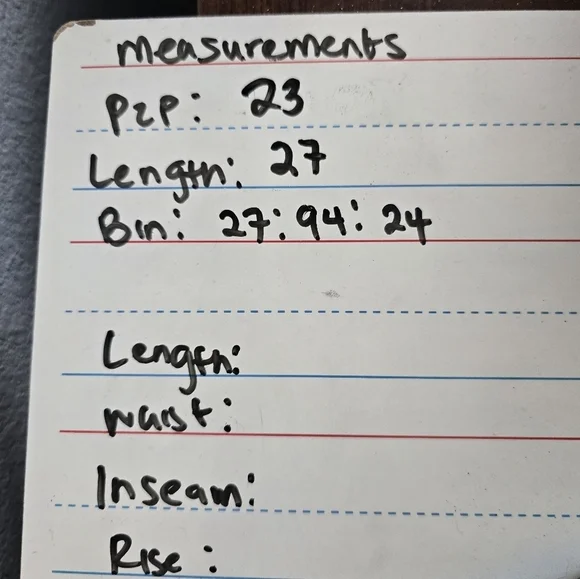 measurements
P2P: 23
Length: 27
Bin: 27:94:24
Length:
waist:
Inseam:
Rise: